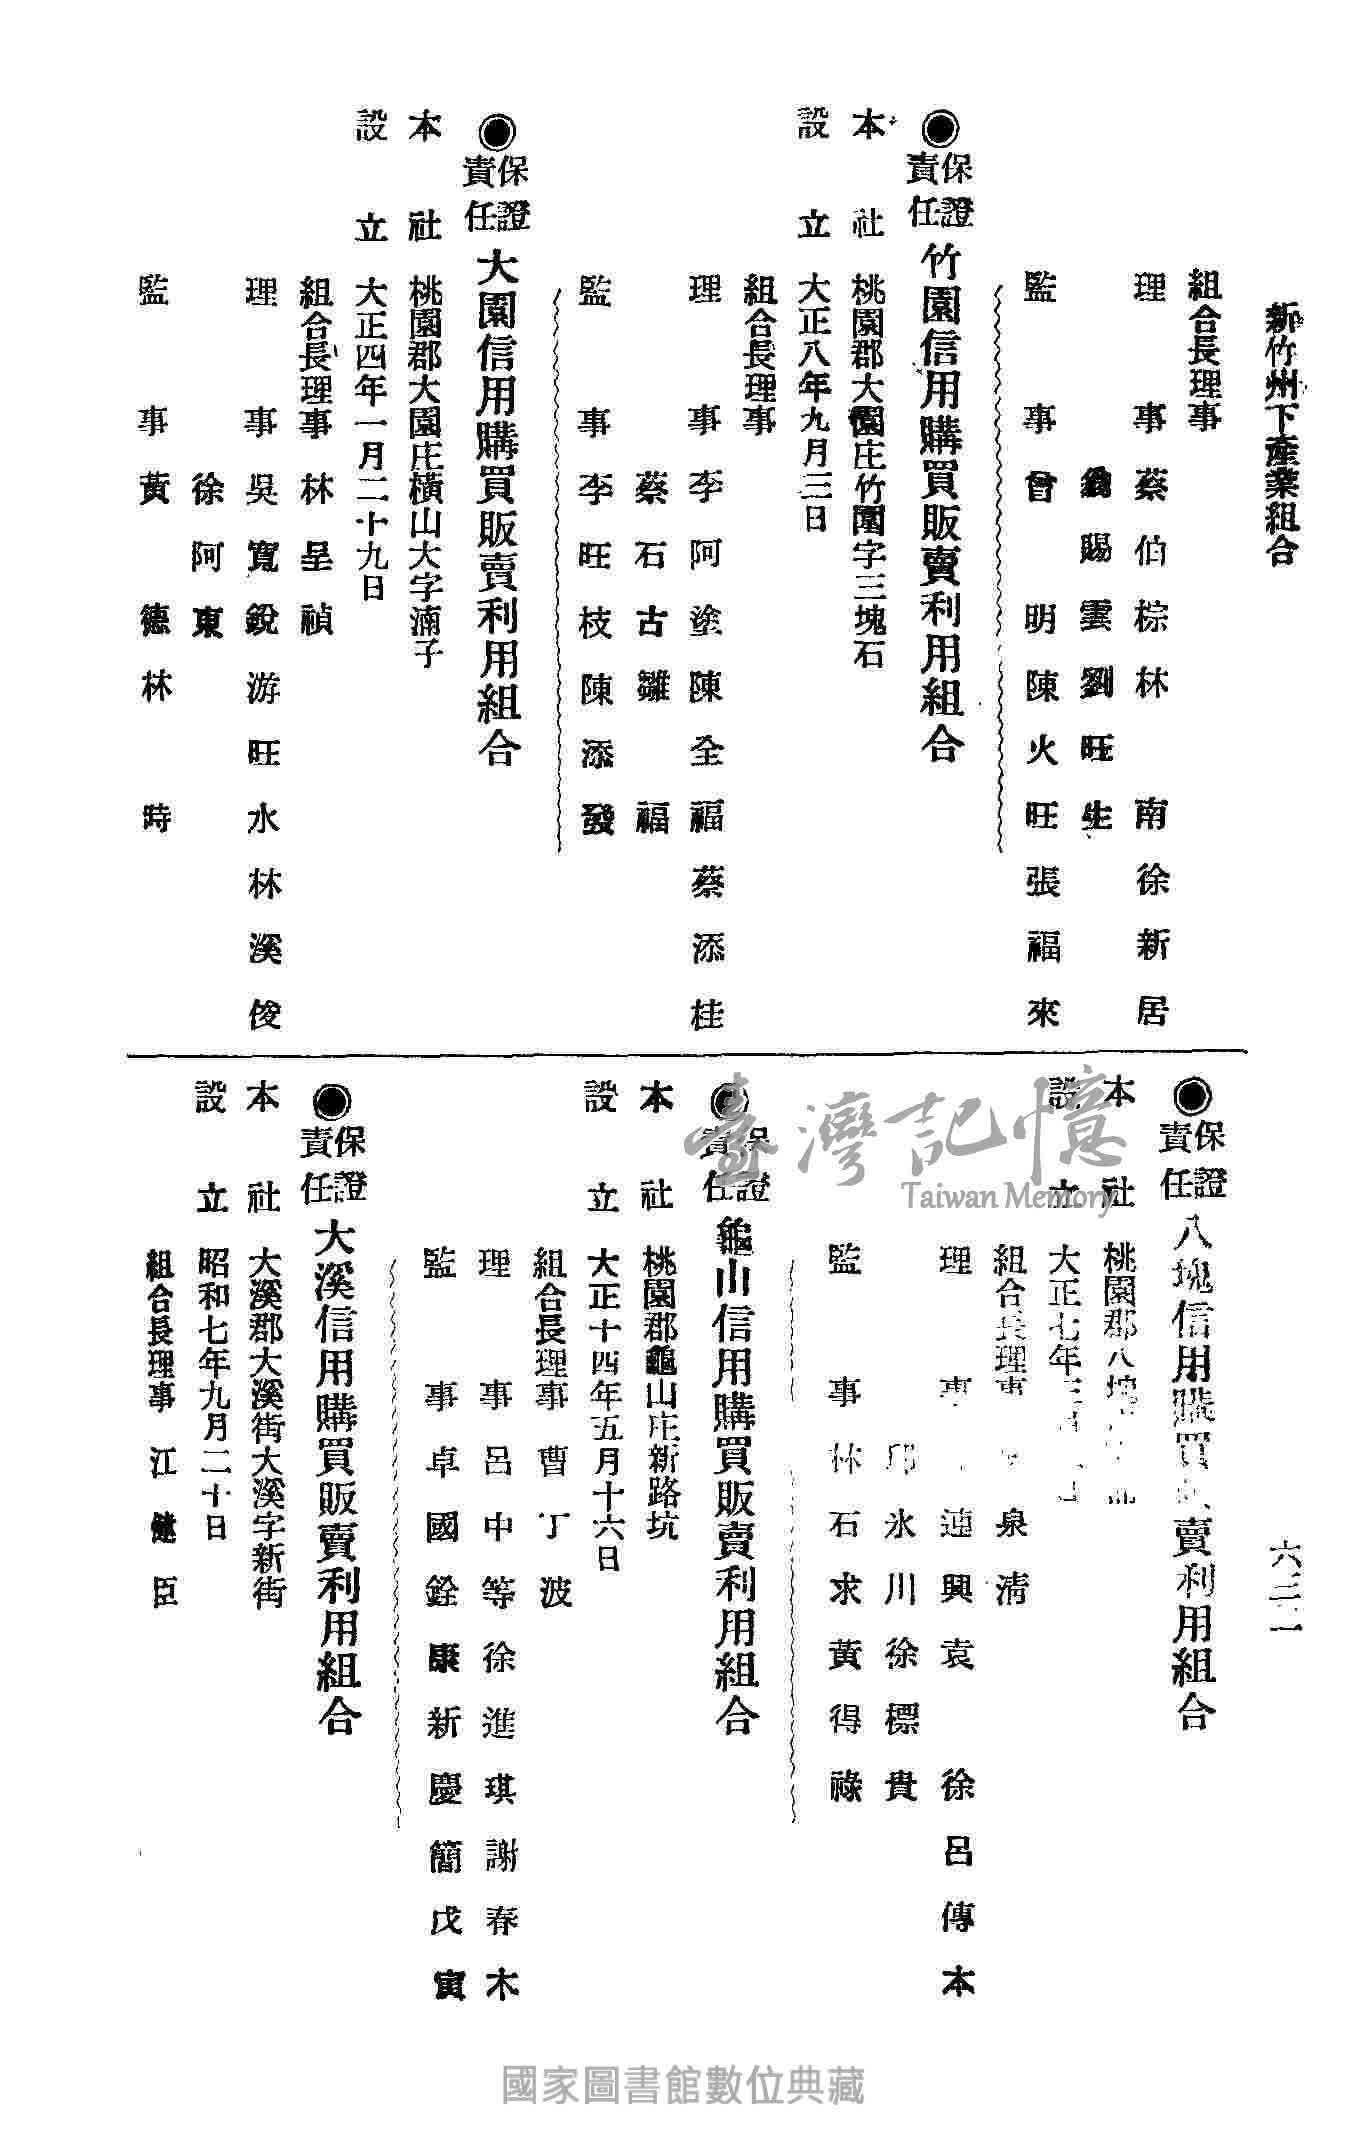 新竹州下產業組合
組合長理事
理事 蔡伯棕 林南 徐新居
賜雲 劉旺生
監事 曾明 陳火旺 張福來
◉保證責任竹園信用購買販賣利用組合
本社 桃園郡大園庄竹圍字三塊石
設立 大正八年九月三日
組合長理事
理事 李阿塗 陳全福 蔡添桂
蔡石古 雛福
監事 李旺枝 陳添發
◉保證責任大園信用購買販賣利用組合
本社 桃園郡大園庄橫山大字湳子
設立 大正四年一月二十九日
組合長理事 林呈禎
理事 吳寬銳 游旺水 林溪俊
徐阿東
監事 黃德林 時
六三二
◉保證責任八塊信用購買 賣利用組合
本社 桃園郡八塊
設立 大正七年
組合長理事 泉清
理事 連興 袁徐 呂傳本
邱水川 徐標貴
監事 林石求 黃得祿
◉保證責任龜山信用購買販賣利用組合
本社 桃園郡龜山庄新路坑
設立 大正十四年五月十六日
組合長理事 曹丁波
理事 呂中等 徐進琪 謝春木
監事 卓國銓 康新慶 簡戊寅
◉保證責任大溪信用購買販賣利用組合
本社 大溪郡大溪街大溪字新街
設立 昭和七年九月二十日
組合長理事 江健臣
臺灣記憶
Taiwan Memory
國家圖書館數位典藏